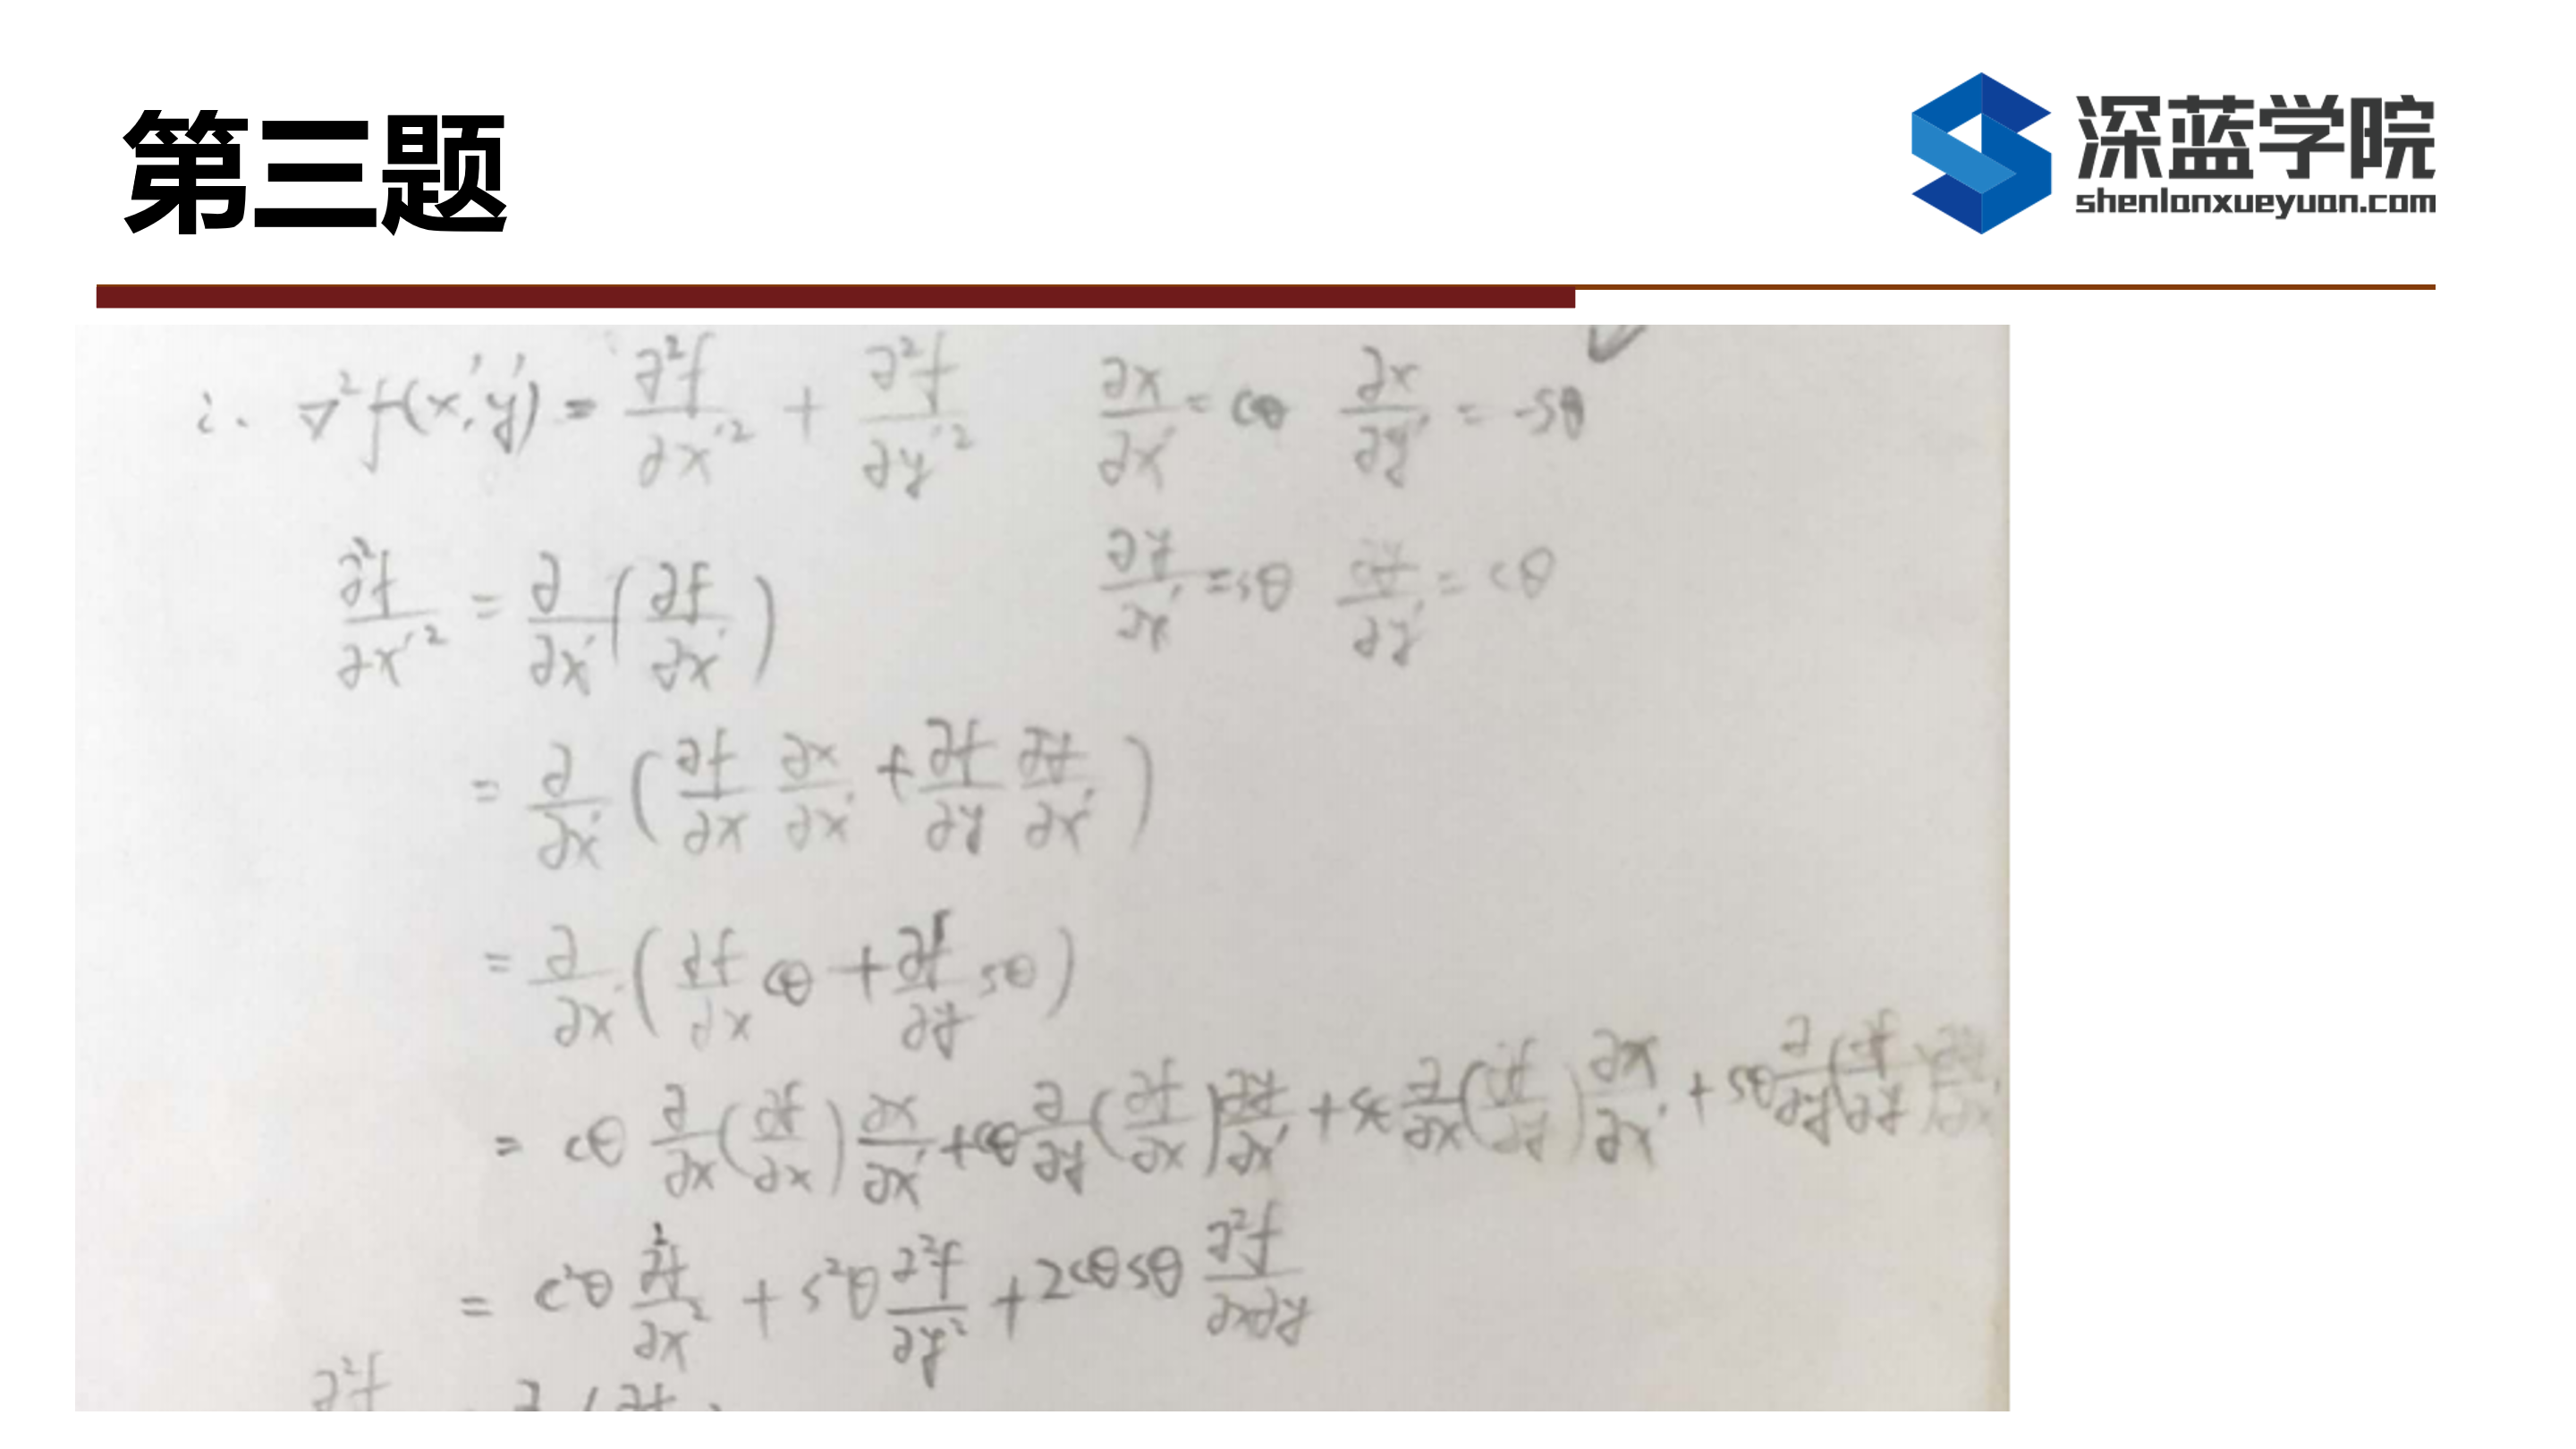 第三题
深蓝学院
shenlanxueyuan.com
i. ∇²f(x′,y′) = ∂²f/∂x′² + ∂²f/∂y′² ∂x/∂x′ = cθ ∂x/∂y′ = -sθ
∂y/∂x′ = sθ ∂y/∂y′ = cθ
∂²f/∂x′² = ∂/∂x′ (∂f/∂x′)
= ∂/∂x′ (∂f/∂x ∂x/∂x′ + ∂f/∂y ∂y/∂x′)
= ∂/∂x′ (∂f/∂x cθ + ∂f/∂y sθ)
= cθ ∂/∂x (∂f/∂x) ∂x/∂x′ + cθ ∂/∂y (∂f/∂x) ∂y/∂x′ + sθ ∂/∂x (∂f/∂y) ∂x/∂x′ + sθ ∂/∂y (∂f/∂y) ∂y/∂x′
= c²θ ∂²f/∂x² + s²θ ∂²f/∂y² + 2cθsθ ∂²f/∂x∂y